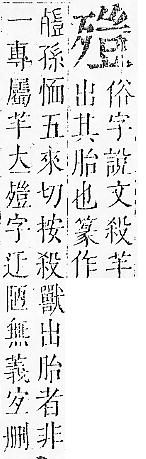 俗字說文殺羊
出其胎也篆作
孫愐五來切按殺獸出胎者非
一專屬羊大字迂陋無義宜刪